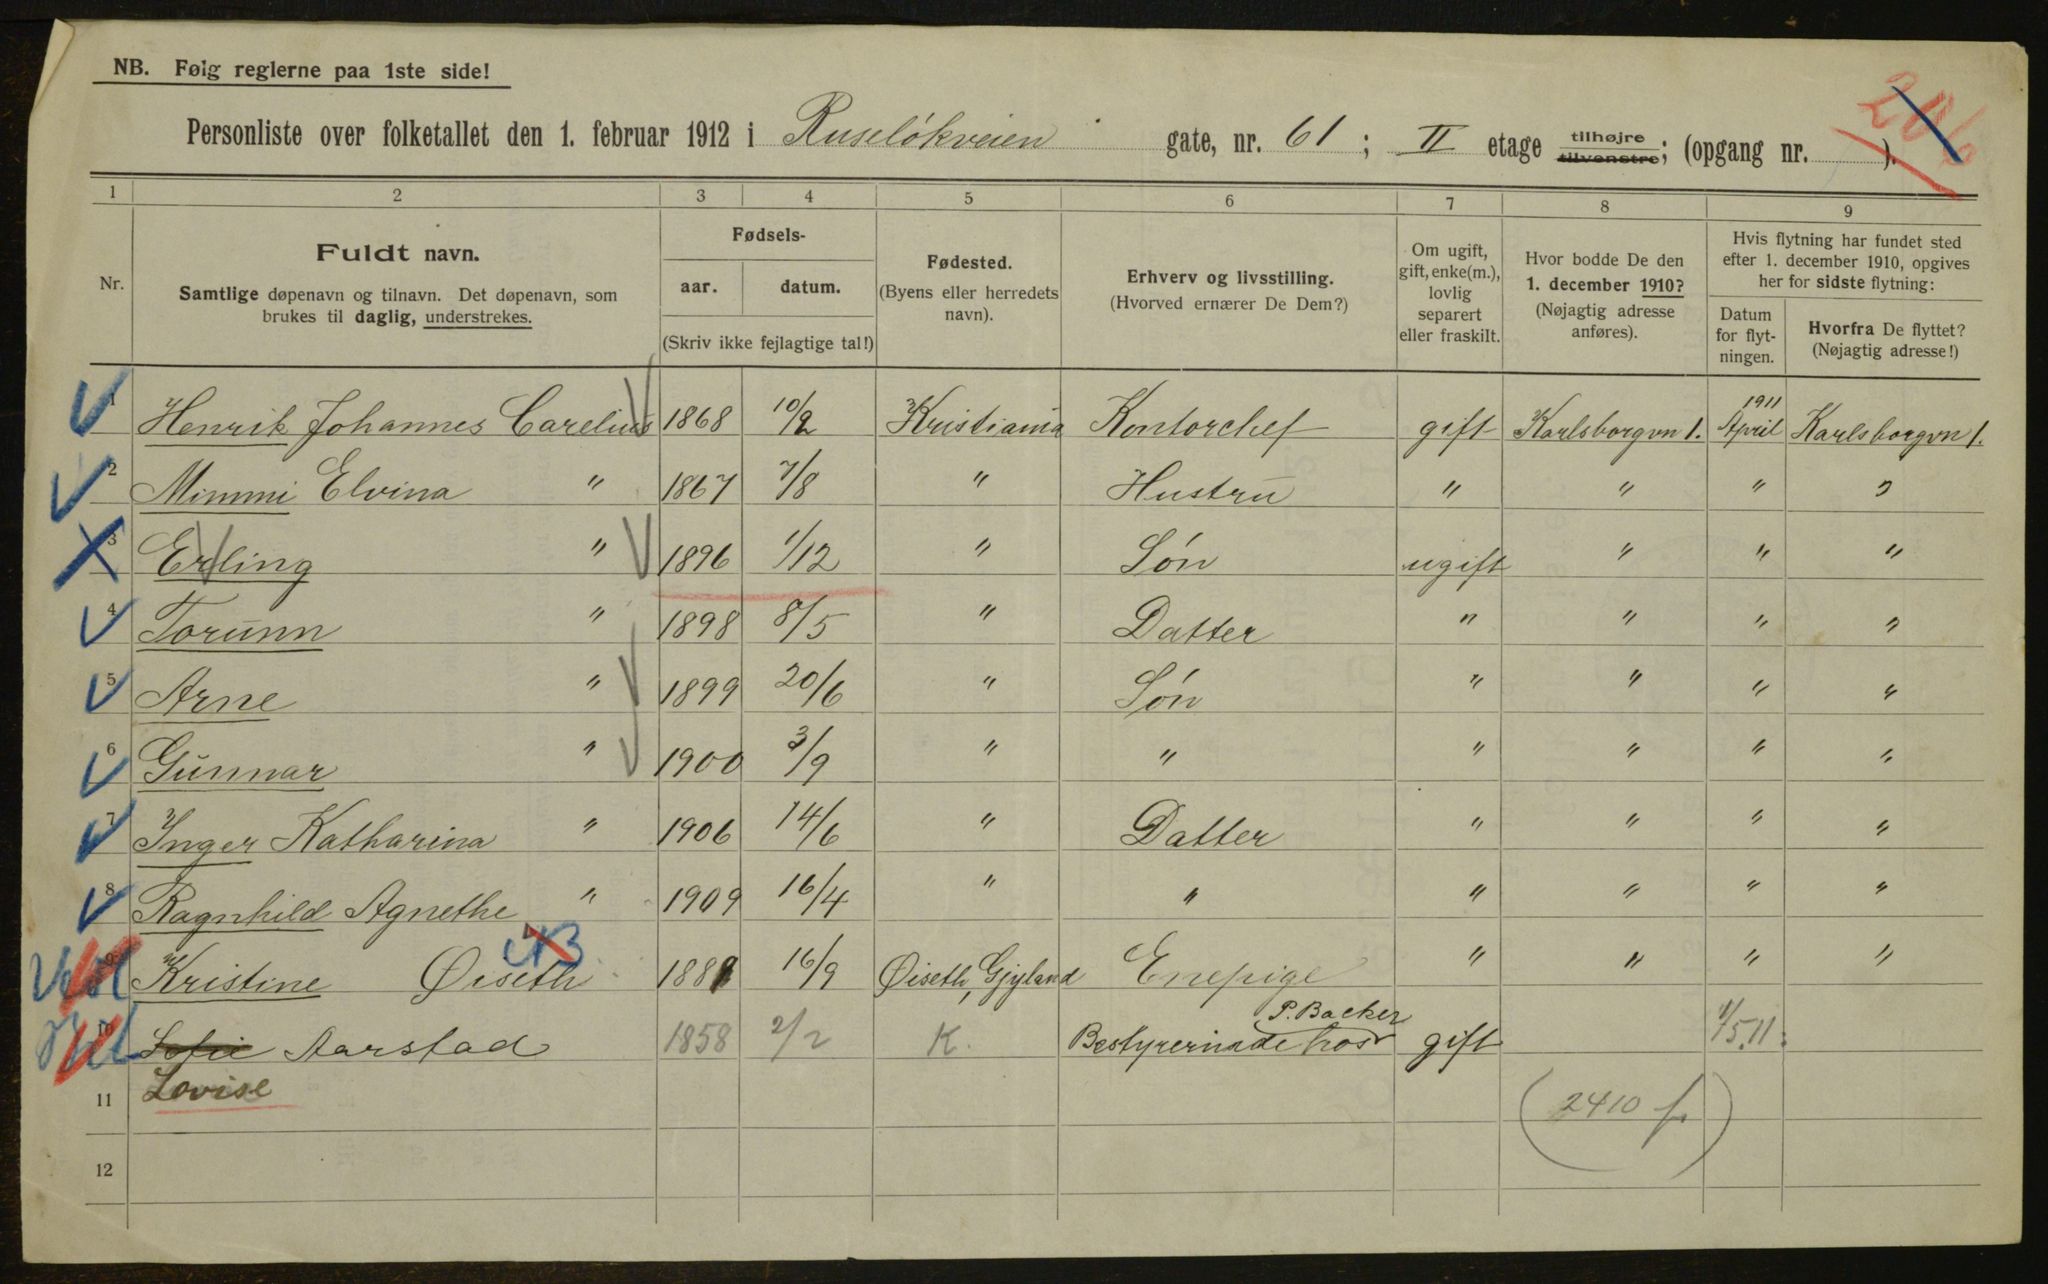 NB. Følg reglerne paa 1ste side!
Personliste over folketallet den 1. februar 1912 i Ruseløkveien gate, nr. 61; II etage tilhøjre tilvenstre; (opgang nr. ).
1 2 3 4 5 6 7 8 9
Nr.
Fuldt navn.
Samtlige døpenavn og tilnavn. Det døpenavn, som
brukes til daglig, understrekes.
Fødsels-
aar. datum.
(Skriv ikke fejlagtige tal!)
Fødested.
(Byens eller herredets
navn).
Erhverv og livsstilling.
(Hvorved ernærer De Dem?)
Om ugift,
gift, enke(m.),
lovlig
separert
eller fraskilt.
Hvor bodde De den
1. december 1910?
(Nøjagtig adresse
anføres).
Hvis flytning har fundet sted
efter 1. december 1910, opgives
her for sidste flytning:
Datum
for flyt-
ningen.
Hvorfra De flyttet?
(Nøjagtig adresse!)
1 Henrik Johannes Carelius 1868 10/2 Kristiania Kontorchef gift Karlsborgvn 1. 1911 April Karlsborgvn 1.
2 Mimmi Elvina " 1867 7/8 " Hustru " " " "
3 Erling " 1896 1/12 " Søn ugift " " "
4 Torunn " 1898 8/5 " Datter " " " "
5 Arne " 1899 20/6 " Søn " " " "
6 Gunnar " 1900 3/9 " " " " " "
7 Inger Katharina " 1906 14/6 " Datter " " " "
8 Ragnhild Agnethe " 1909 16/4 " " " " " "
9 Kristine Øiseth 1889 16/9 Øiseth, Gjyland Enepige " " " "
10 Sofie Aarstad 1858 2/2 K. Bestyrerinde hos P. Backer gift 1/5.11.
11 Lovise
(2410 f.)
12